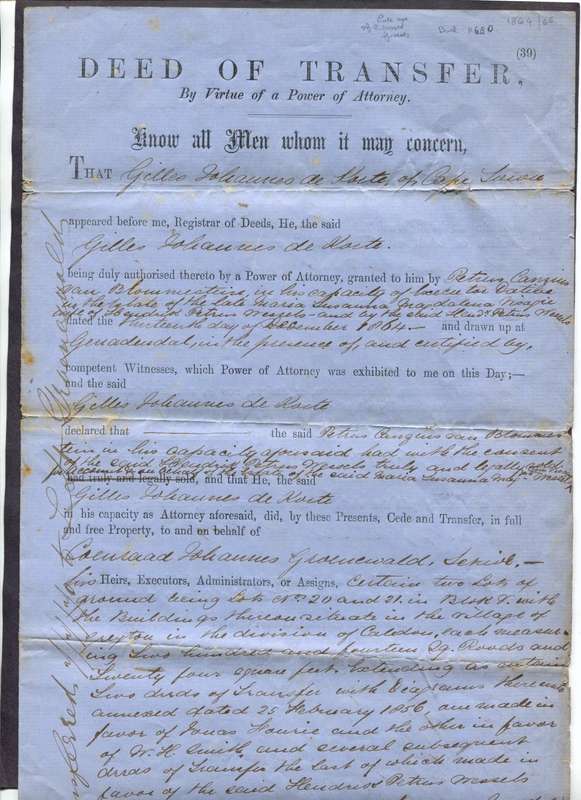 1864/65
(39)
DEED OF TRANSFER,
By Virtue of a Power of Attorney.
Know all Men whom it may concern,
THAT Gilles Johannes de Korte, of Cape Town
appeared before me, Registrar of Deeds, He, the said
Gilles Johannes de Korte.
being duly authorised thereto by a Power of Attorney, granted to him by Petrus
van Blommestein, in his capacity as
in the Estate of the late Maria Susanna Magdalena
wife of Hendrik Petrus Wessels and by the said Hend. Petrus Wessels
dated the thirteenth day of December 1864 and drawn up at
Genadendal, in the presence of, and certified by,
competent Witnesses, which Power of Attorney was exhibited to me on this Day;—
and the said
Gilles Johannes de Korte
declared that the said Petrus van Blommes-
tein in his capacity aforesaid had with the consent
of the said Hendrik Petrus Wessels truly and legally sold
on behalf of the said Maria Susanna Wessels
had truly and legally sold, and that He, the said
Gilles Johannes de Korte
in his capacity as Attorney aforesaid, did, by these Presents, Cede and Transfer, in full
and free Property, to and on behalf of
Coenraad Johannes Groenewald, Senior,—
his Heirs, Executors, Administrators, or Assigns, Certain two Lots of
ground being Lots Nos 20 and 21 in Block F. with
the Buildings thereon situate in the Village of
Greyton in the division of Caledon, each measur-
ing Two hundred and fourteen Sq. Roods and
Twenty four square feet. Extending as
Two deeds of Transfer with Diagrams thereunto
annexed dated 25 February 1856, one made in
favor of Jonas Fourie and the other in favor
of W. H. Smith and several subsequent
deeds of Transfer the last of which made in
favor of the said Hendrik Petrus Wessels